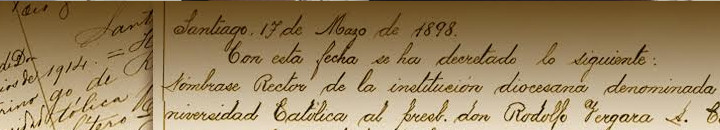 Santiago, 17 de Mayo de 1898.
Con esta fecha se ha decretado lo siguiente:
Nómbrase Rector de la institución diocesana denominada
niversidad Católica al presb. don Rodolfo Vergara A.
Sant
1914. =
go de
tólica